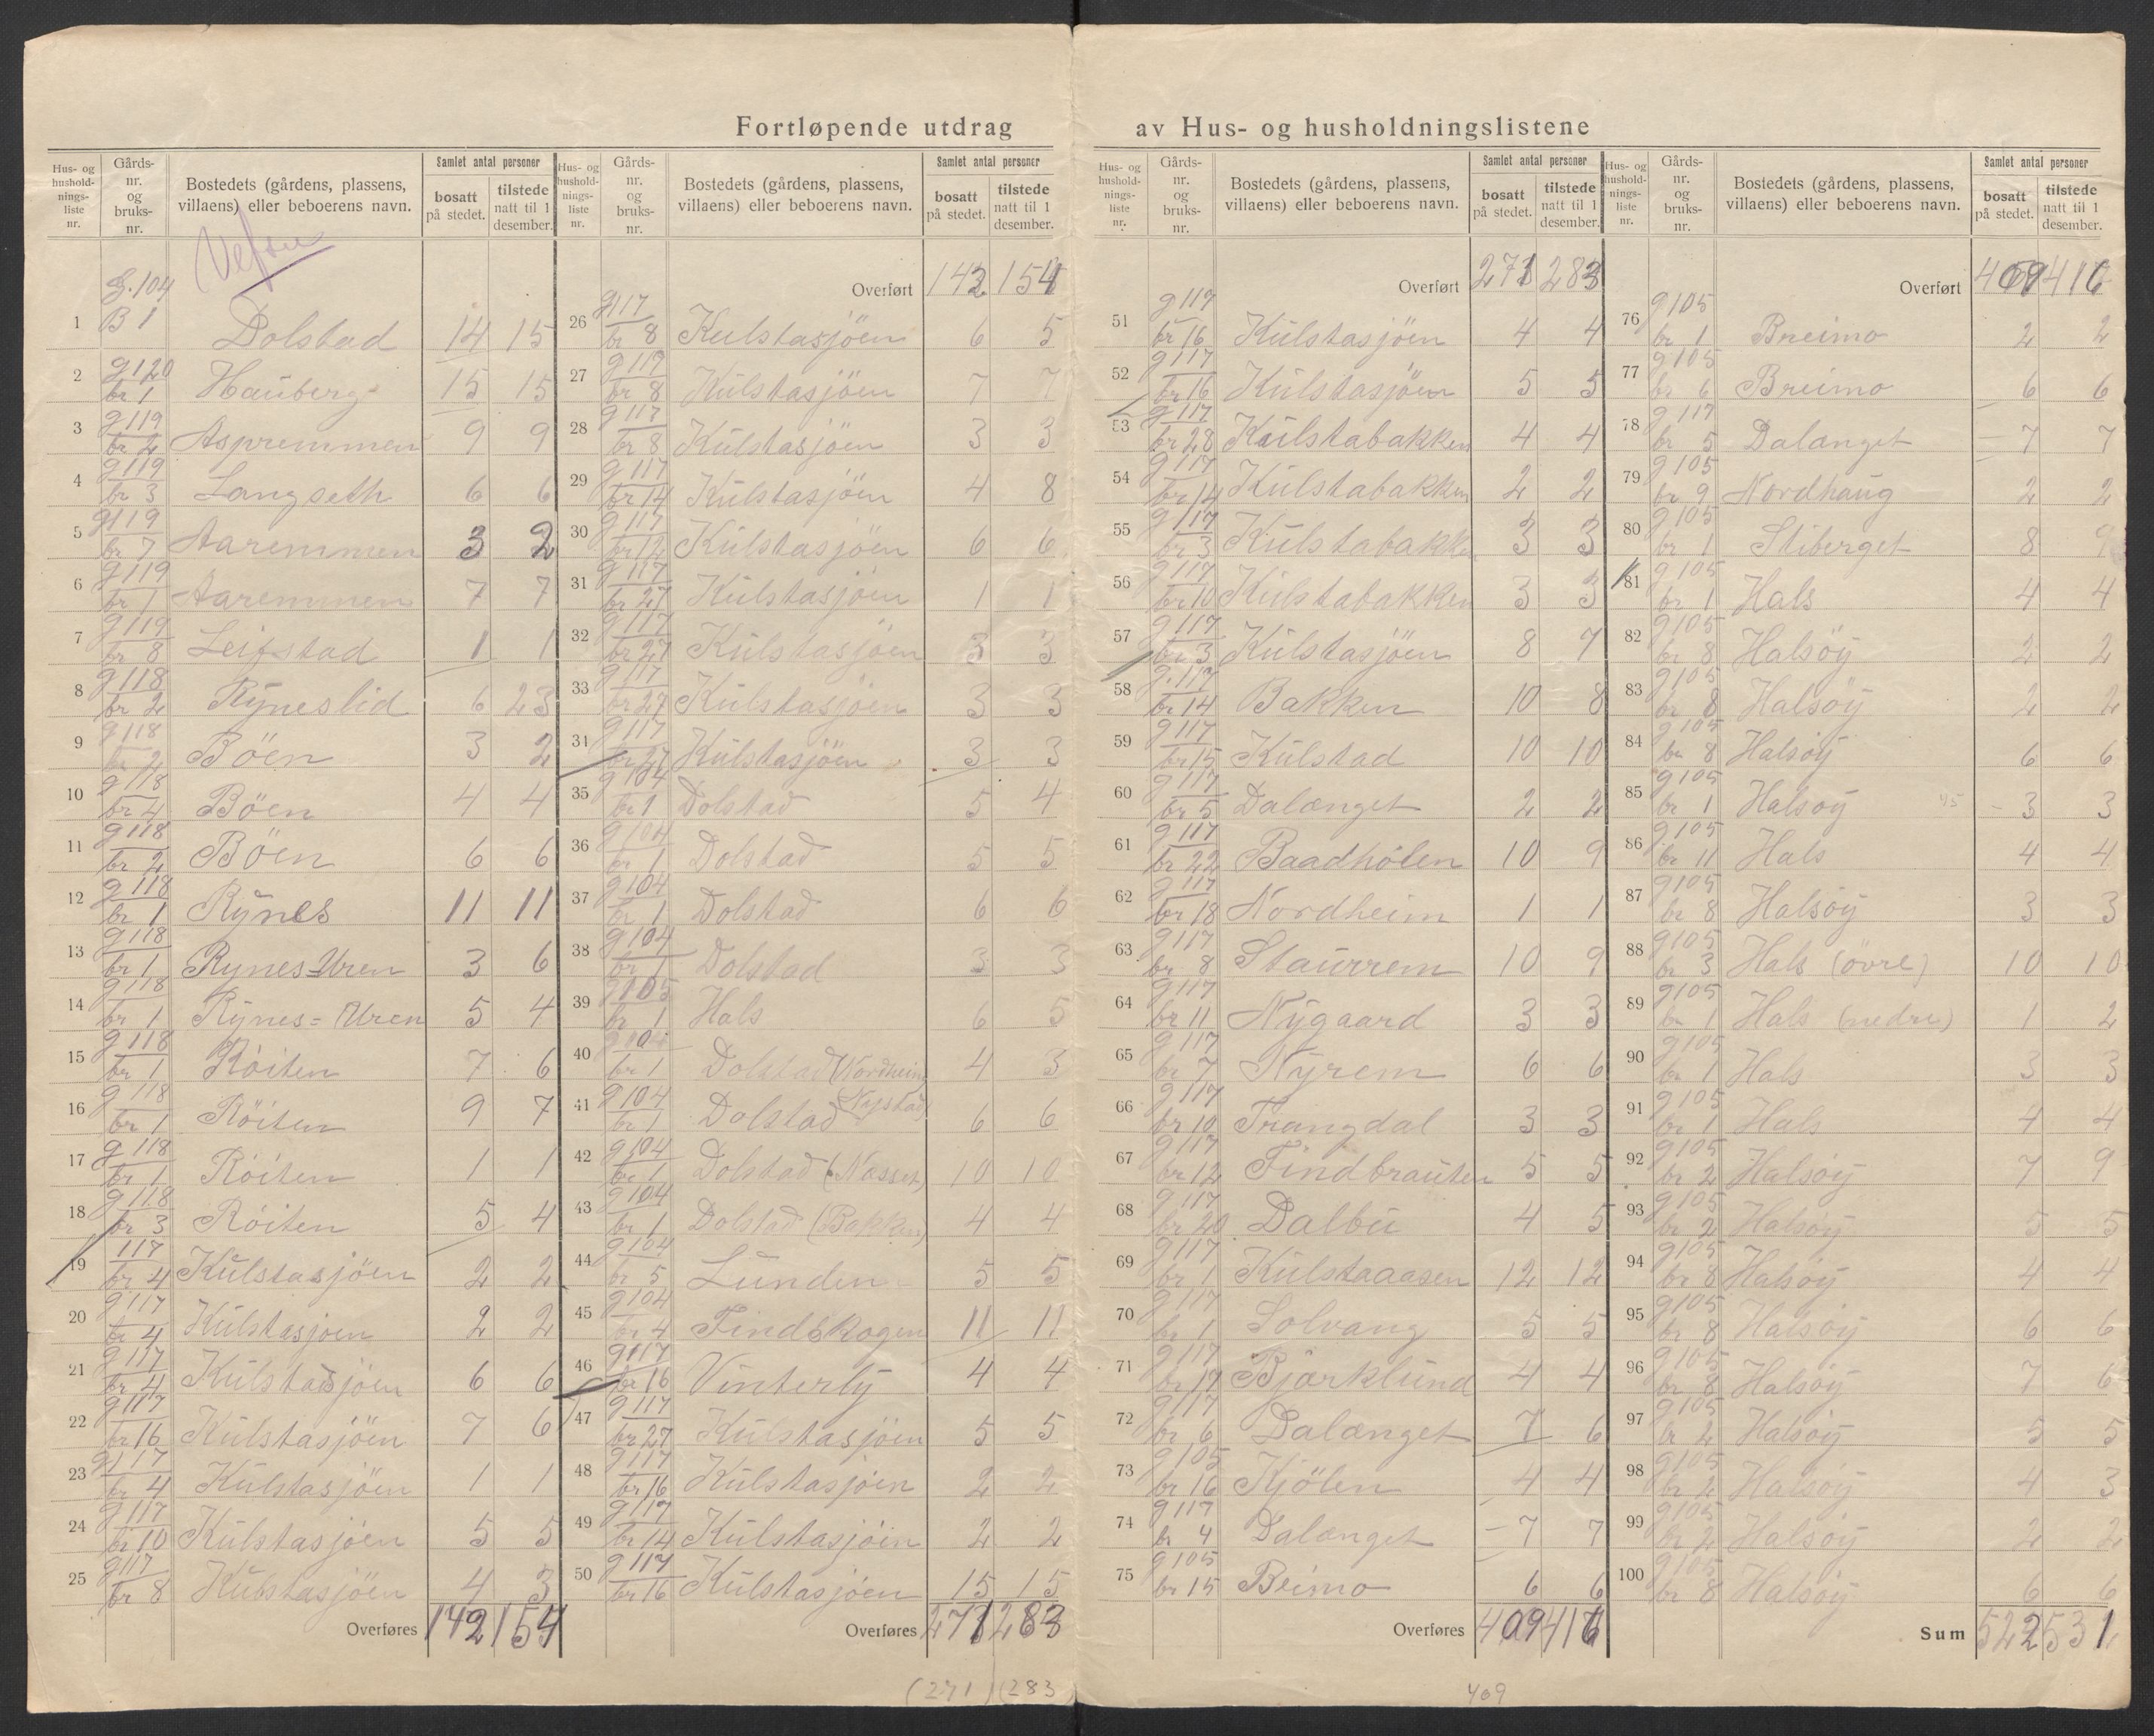 Fortløpende utdrag av Hus- og husholdningslistene
Hus- og hushold-nings-liste nr. Gårds-nr. og bruks-nr. Bostedets (gårdens, plassens, villaens) eller beboerens navn. Samlet antal personer bosatt på stedet. tilstede natt til 1 desember.
Vefsn
1 G.104 B 1 Dolstad 14 15
2 g120 br 1 Hauberg 15 15
3 g119 br 2 Aspremmen 9 9
4 g119 br 3 Langseth 6 6
5 g119 br 7 Aaremmen 3 2
6 g119 br 1 Aaremmen 7 7
7 g119 br 8 Leifstad 1 1
8 g118 br 2 Ryneslid 6 23
9 g118 br 2 Böen 3 2
10 g118 br 4 Böen 4 4
11 g118 br 2 Böen 6 6
12 g118 br 1 Rynes 11 11
13 g118 br 1 Rynes-Uren 3 6
14 g118 br 1 Rynes=Uren 5 4
15 g118 br 1 Röiten 7 6
16 g118 br 1 Röiten 9 7
17 g118 br 1 Röiten 1 1
18 g118 br 3 Röiten 5 4
19 117 br 4 Kulstasjöen 2 2
20 g117 br 4 Kulstasjöen 2 2
21 g117 br 4 Kulstadsjöen 6 6
22 g117 br 16 Kulstasjöen 7 6
23 g117 br 4 Kulstasjöen 1 1
24 g117 br 10 Kulstasjöen 5 5
25 g117 br 8 Kulstasjöen 4 3
Overføres 142 154
Hus- og hushold-nings-liste nr. Gårds-nr. og bruks-nr. Bostedets (gårdens, plassens, villaens) eller beboerens navn. Samlet antal personer bosatt på stedet. tilstede natt til 1 desember.
Overført 142 154
26 g117 br 8 Kulstasjöen 6 5
27 g117 br 8 Kulstasjöen 7 7
28 g117 br 8 Kulstasjöen 3 3
29 g117 br 14 Kulstasjöen 4 8
30 g117 br 12 Kulstasjöen 6 6
31 g117 br 27 Kulstasjöen 1 1
32 g117 br 27 Kulstasjöen 3 3
33 g117 br 27 Kulstasjöen 3 3
31 g117 br 27 Kulstasjöen 3 3
35 g104 br 1 Dolstad 5 4
36 g104 br 1 Dolstad 5 5
37 g104 br 1 Dolstad 6 6
38 g104 br 1 Dolstad 3 3
39 g105 br 1 Hals 6 5
40 g104 br 1 Dolstad (Nordheim) 4 3
41 g104 br 1 Dolstad (Nystad) 6 6
42 g104 br 1 Dolstad (Nesset) 10 10
43 g104 br 1 Dolstad (Bakken) 4 4
44 g104 br 5 Lunden 5 5
45 g104 br 4 Findskogen 11 11
46 g117 br 16 Vinterly 4 4
47 g117 br 27 Kulstasjöen 5 5
48 g117 br 16 Kulstasjöen 2 2
49 g117 br 14 Kulstasjöen 2 2
50 g117 br 16 Kulstasjöen 15 15
Overføres 271 283
(271) (283
Hus- og hushold-nings-liste nr. Gårds-nr. og bruks-nr. Bostedets (gårdens, plassens, villaens) eller beboerens navn. Samlet antal personer bosatt på stedet. tilstede natt til 1 desember.
Overført 271 283
51 g117 br 16 Kulstasjöen 4 4
52 g117 br 16 Kulstasjöen 5 5
53 g117 br 28 Kulstabakken 4 4
54 g117 br 14 Kulstabakken 2 2
55 g117 br 3 Kulstabakken 3 3
56 g117 br 10 Kulstabakken 3 3
57 g117 br 3 Kulstasjöen 8 7
58 g.117 br 14 Bakken 10 8
59 g117 br 15 Kulstad 10 10
60 g117 br 5 Dalænget 2 2
61 g117 br 22 Baadhölen 10 9
62 g117 br 18 Nordheim 1 1
63 g117 br 8 Staurrem 10 9
64 g117 br 11 Nygaard 3 3
65 g117 br 7 Nyrem 6 6
66 g117 br 10 Trangdal 3 3
67 g117 br 12 Findbrauten 5 5
68 g117 br 20 Dalbu 4 5
69 g117 br 1 Kulstaaasen 12 12
70 g117 br 1 Solvang 5 5
71 g117 br 17 Bjarklund 4 4
72 g117 br 6 Dalænget 7 6
73 g105 br 16 Kjölen 4 4
74 g117 br 4 Dalænget 7 7
75 g105 br 15 Beimo 6 6
Overføres 409 416
409
Hus- og hushold-nings-liste nr. Gårds-nr. og bruks-nr. Bostedets (gårdens, plassens, villaens) eller beboerens navn. Samlet antal personer bosatt på stedet. tilstede natt til 1 desember.
Overført 409 416
76 g105 br 1 Breimo 2 2
77 g105 br 6 Breimo 6 6
78 g117 br 5 Dalænget 7 7
79 g105 br 9 Nordhaug 2 2
80 g105 br 1 Stiberget 8 9
81 g105 br 1 Hals 4 4
82 g105 br 8 Halsöy 2 2
83 g105 br 8 Halsöy 2 2
84 g105 br 8 Halsöy 6 6
85 g105 br 1 Halsöy 3 3
86 g105 br 11 Hals 4 4
87 g105 br 8 Halsöy 3 3
88 g105 br 3 Hals (övre) 10 10
89 g105 br 1 Hals (nedre) 1 2
90 g105 br 1 Hals 3 3
91 g105 br 1 Hals 4 4
92 g105 br 2 Halsöy 7 9
93 g105 br 2 Halsöy 5 5
94 g105 br 8 Halsöy 4 4
95 g105 br 8 Halsöy 6 6
96 g105 br 8 Halsöy 7 6
97 g105 br 2 Halsöy 5 5
98 g105 br 2 Halsöy 4 3
99 g105 br 2 Halsöy 2 2
100 g105 br 8 Halsöy 6 6
Sum 522 531